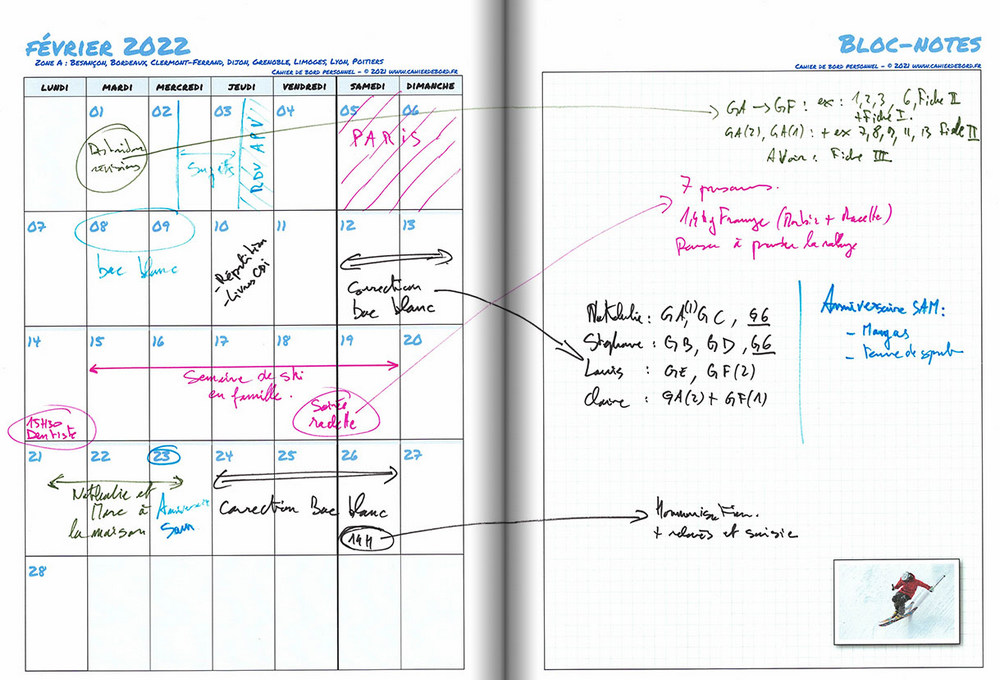 FÉVRIER 2022
ZONE A : BESANÇON, BORDEAUX, CLERMONT-FERRAND, DIJON, GRENOBLE, LIMOGES, LYON, POITIERS
CAHIER DE BORD PERSONNEL - © 2021 WWW.CAHIERDEBORD.FR
LUNDI MARDI MERCREDI JEUDI VENDREDI SAMEDI DIMANCHE
01 02 03 04 05 06
révisions
RDV APV
PARIS
07 08 09 10 11 12 13
bac blanc
- Répétition
- Livres CDI
Correction
bac blanc
14 15 16 17 18 19 20
Semaine de ski
en famille.
Soirée
raclette
15H30
Dentiste
21 22 23 24 25 26 27
Nathalie et
Marc à
la maison
Anniversaire
Sam
Correction Bac blanc
14H
28
BLOC-NOTES
CAHIER DE BORD PERSONNEL - © 2021 WWW.CAHIERDEBORD.FR
GA → GF : ex : 1,2,3, 6, Fiche II
+ Fiche I.
GA(2), GA(1) : + ex 7, 8, 9, 11, 13 Fiche II
A voir : Fiche III
7 personnes.
Penser à
Nathalie : GA(1) GC, GG
Stéphane : GB, GD, GG
Louis : GE, GF(2)
Claire : GA(2) + GF(1)
Anniversaire SAM :
- Mangas
- Tenue de sport
Harmonisation.
+ relevés et saisie